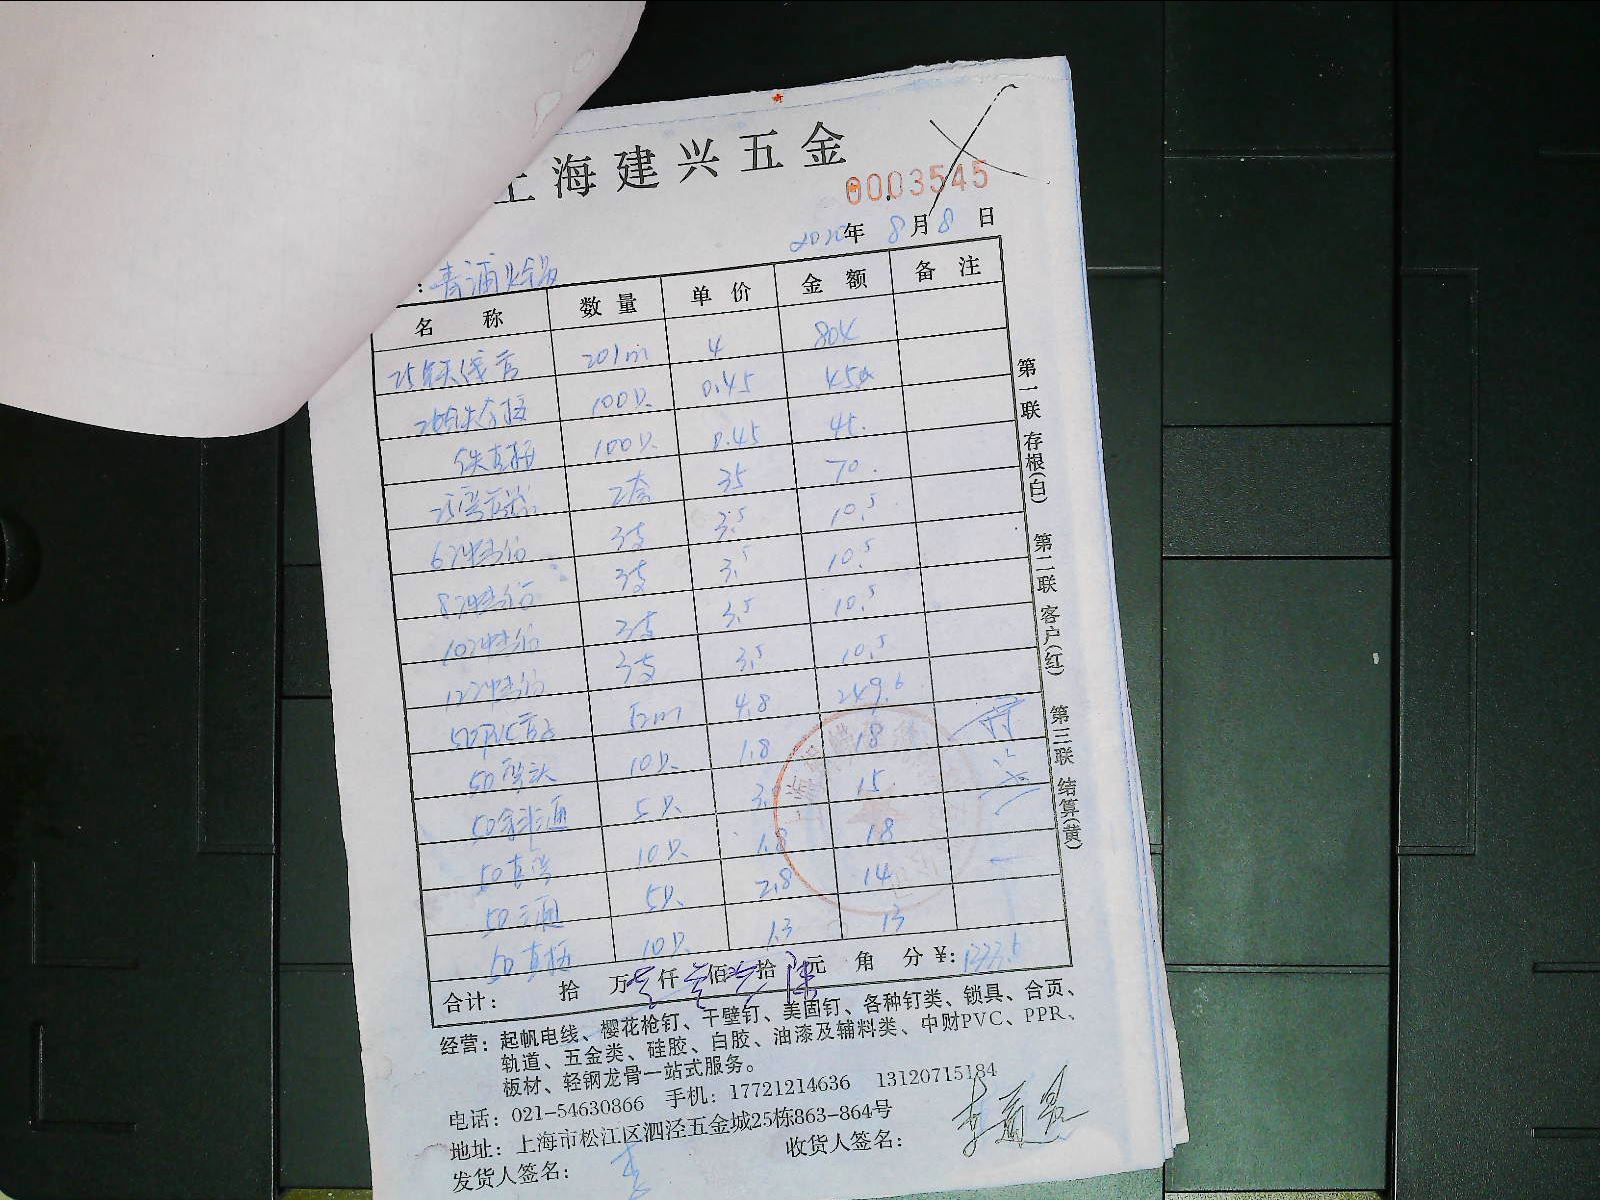 上海建兴五金
0003545
年 8月8日
：青浦火锅
名 称 数量 单价 金额 备注
201m 4 804
100只 0.45 45
铁直接 100只 0.45 45.
2套 35 70.
6冲击钻 3支 3.5 10.5
8冲击钻 3支 3.5 10.5
10冲击钻 3支 3.5 10.5
12冲击钻 3支 3.5 10.5
50PVC管子 52m 4.8 249.6
50弯头 10只 1.8 18
5只 3 15
10只 1.8 18
50三通 5只 2.8 14
50直接 10只 1.3 13
合计： 拾 万 仟 佰 拾 元 角 分 ¥:
经营：起帆电线、樱花枪钉、干壁钉、美固钉、各种钉类、锁具、合页、
轨道、五金类、硅胶、白胶、油漆及辅料类、中财PVC、PPR、
板材、轻钢龙骨一站式服务。
电话：021-54630866 手机：17721214636 13120715184
地址：上海市松江区泗泾五金城25栋863-864号
发货人签名： 收货人签名：
第一联 存根(白) 第二联 客户(红) 第三联 结算(黄)